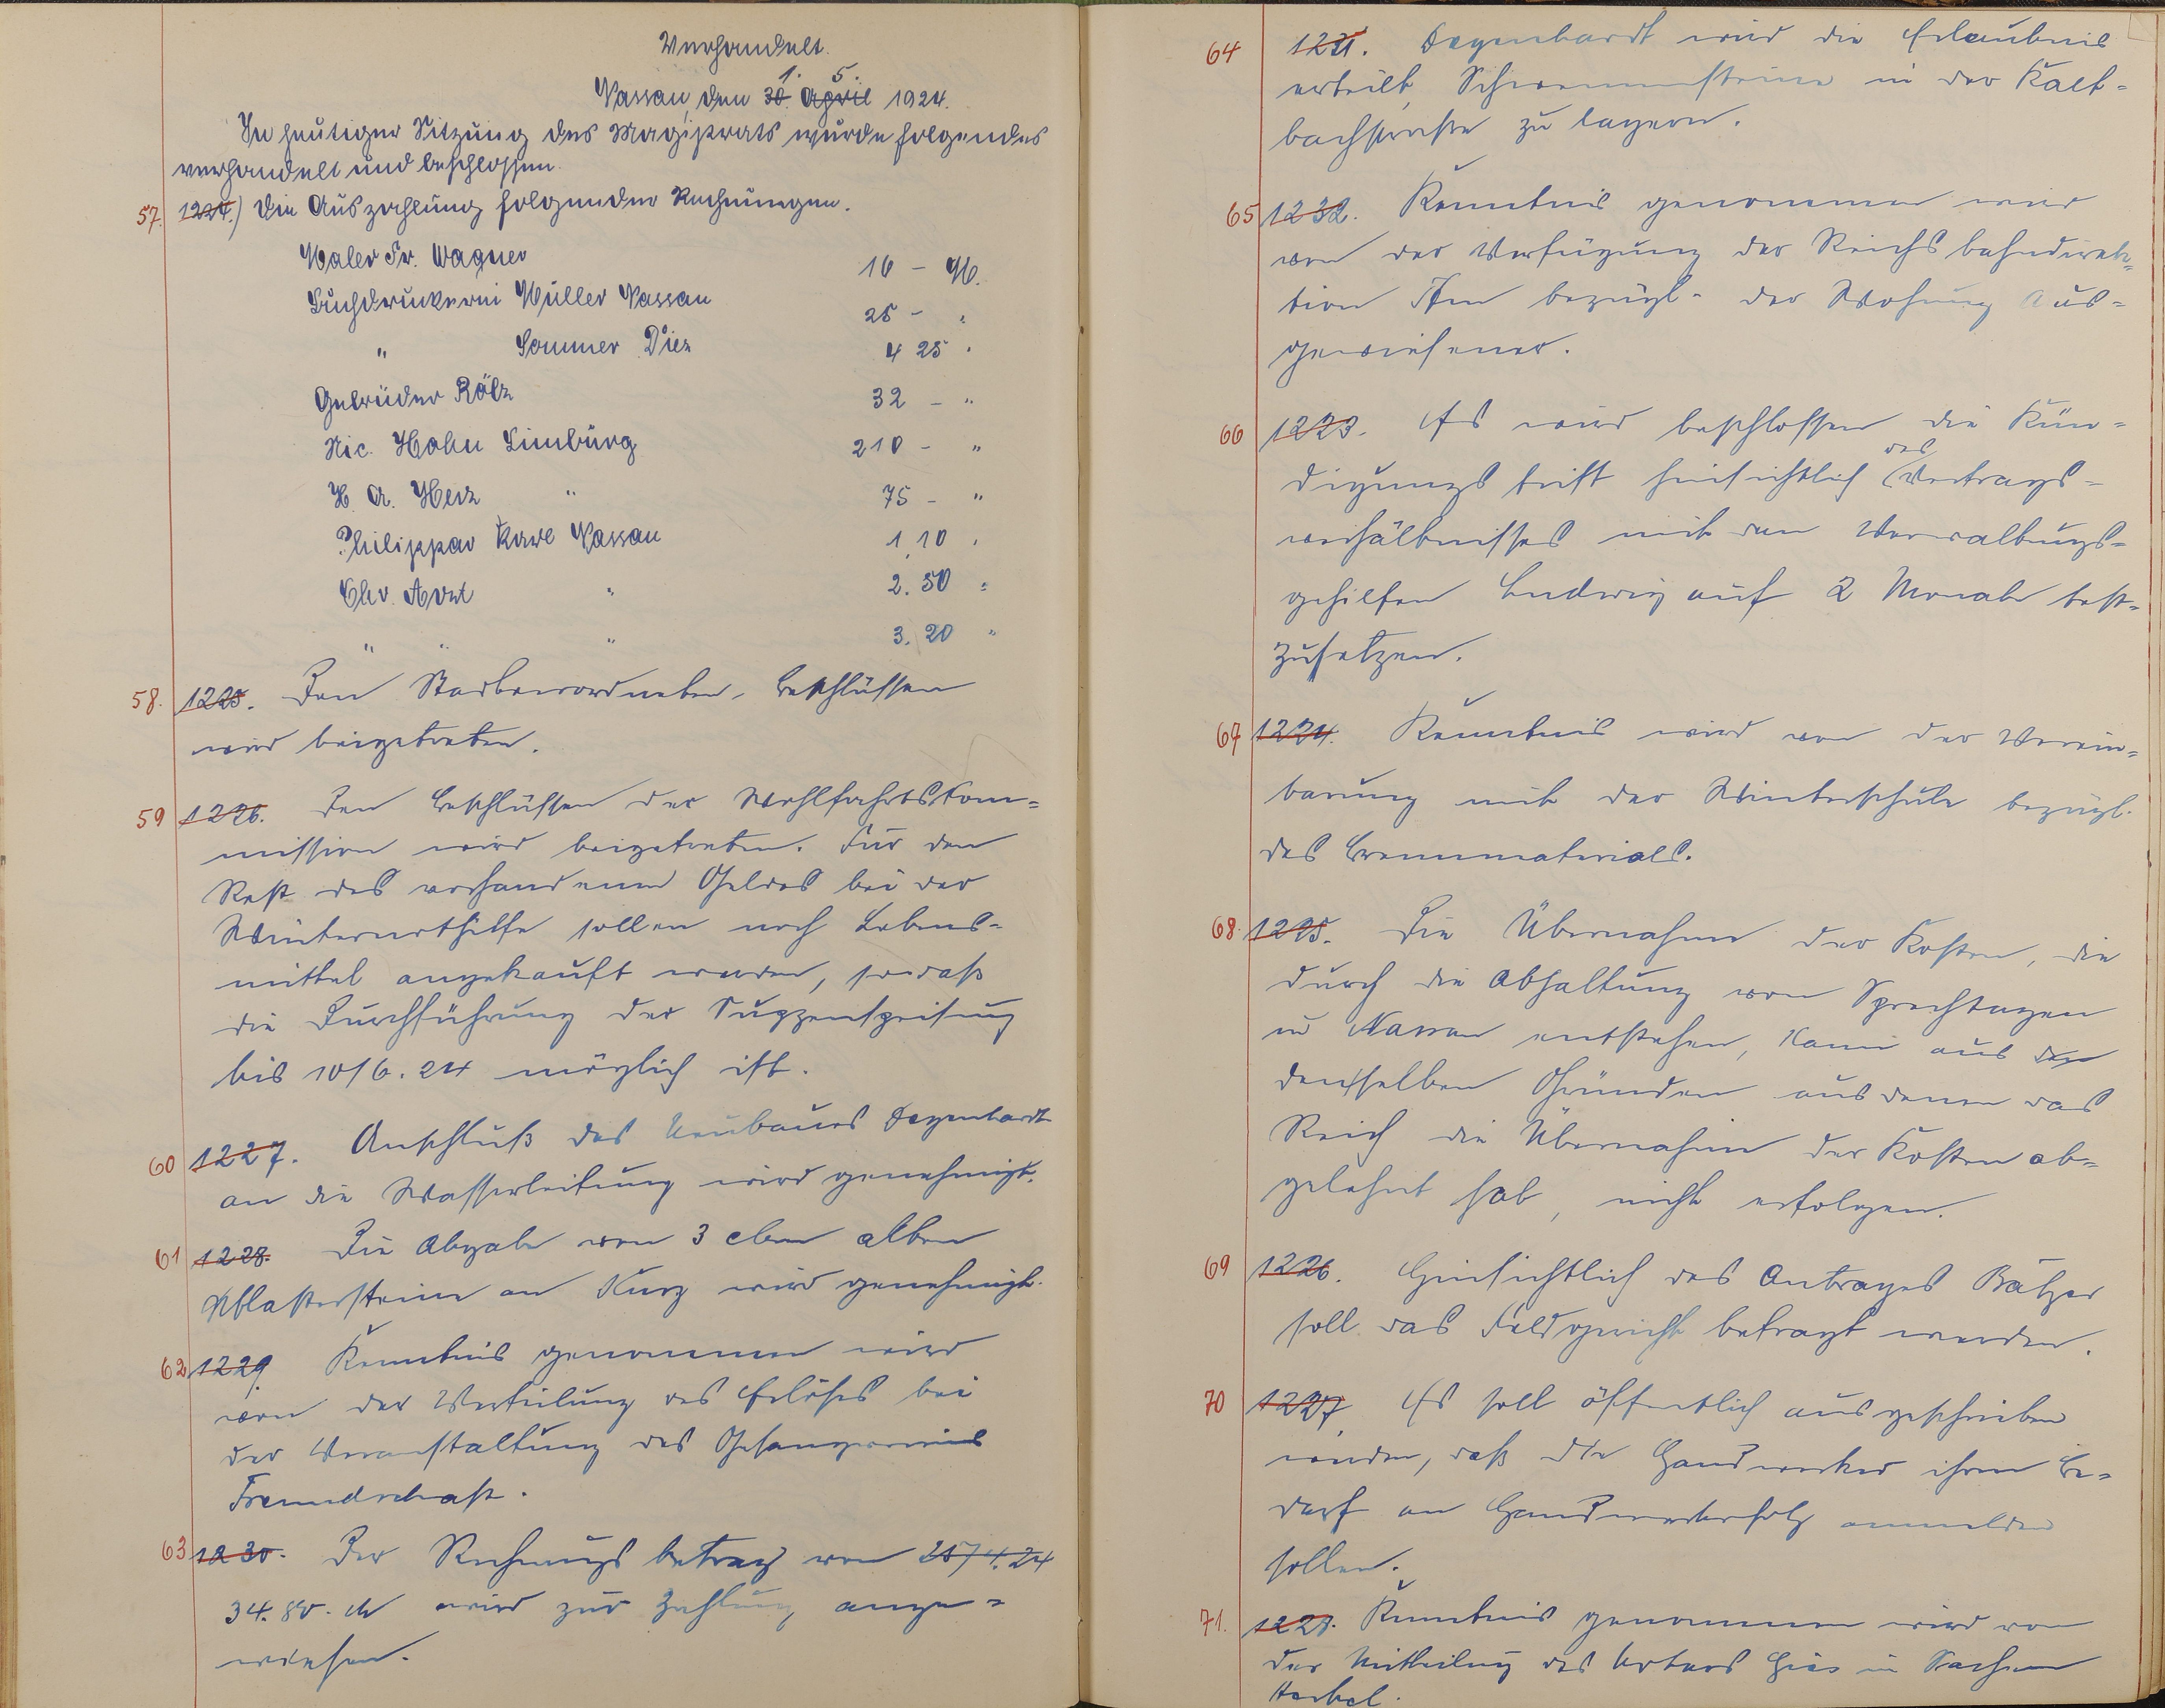 Verhandelt.
1. 5.
Nassau, den 30. April 1924.
In heutiger Sitzung des Magistrats wurde folgendes
verhandelt und beschlossen.
57. 1224.) Die Auszahlung folgender Rechnungen.
Maler Fr. Wagner 16 – M.
Buchdruckerei Müller Nassau 25 – "
" Sommer Diez 4 25 "
Gebrüder Rölz 32 – "
Nic. Hahn Limburg 210 – "
H. A. Herz " 75 – "
Philippar Karl Nassau 1,10 "
Chr. Arzt " 2.50 "
" " " 3.20 "
58. 1225. Den Stadtverordneten-Beschlüssen
wird beigetreten.
59 1226. Den Beschlüssen der Wohlfahrtskom=
mission wird beigetreten. Für den
Rest des vorhandenen Geldes bei der
Winternothilfe sollen noch Lebens=
mittel angekauft werden, sodaß
die Durchführung der Suppenspeisung
bis 10/6.24 möglich ist.
60 1227. Anschluß des Neubaues Degenhardt
an die Wasserleitung wird genehmigt.
61 1228. Die Abgabe von 3 cbm alten
Pflastersteinen an Kurz wird genehmigt.
62 1229. Kenntnis genommen wird
von der Verteilung des Erlöses bei
der Veranstaltung des Gesangvereins
Freundschaft.
63 1230. Der Rechnungsbetrag von 2574.24
34.80. M wird zur Zahlung ange=
wiesen.
64 1231. Degenhardt wird die Erlaubnis
erteilt, Schwemmsteine in der Kalt=
bachstraße zu lagern.
65 1232. Kenntnis genommen wird
von der Verfügung der Reichsbahndirek=
tion Ffm bezügl. der Wohnung Aus=
gewiesener.
66 1223. Es wird beschlossen die Kün=
digungsfrist hinsichtlich des Vertrags=
verhältnisses mit dem Verwaltungs=
gehilfen Ludwig auf 2 Monate fest=
zusetzen.
67 1224. Kenntnis wird von der Verein=
barung mit der Winterschule bezügl.
des Brennmaterials.
68. 1225. Die Übernahme der Kosten, die
durch die Abhaltung von Sprechtagen
in Nassau entstehen, kann aus den
denselben Gründen aus denen das
Reich die Übernahme der Kosten ab=
gelehnt hat, nicht erfolgen.
69 1226. Hinsichtlich des Antrages Bätzer
soll das Feldgericht befragt werden.
70 1227. Es soll öffentlich ausgeschrieben
werden, daß die Handwerker ihren Be=
darf an Handwerkerholz anmelden
sollen.
71. 1228. Kenntnis genommen wird von
der Mitteilung des in Sachen